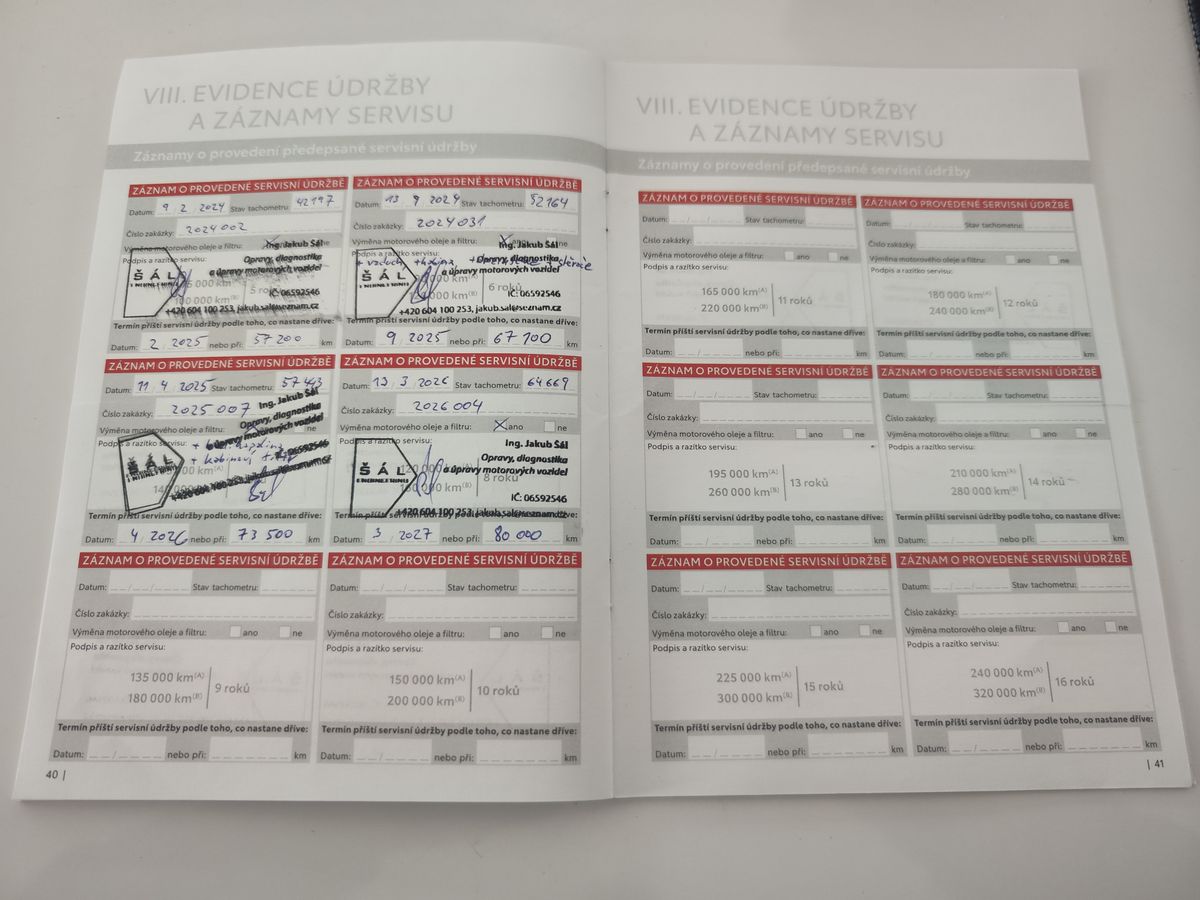 VIII. EVIDENCE ÚDRŽBY
A ZÁZNAMY SERVISU
Záznamy o provedení předepsané servisní údržby
ZÁZNAM O PROVEDENÉ SERVISNÍ ÚDRŽBĚ
Datum: 9 2 2024 Stav tachometru: 42197
Číslo zakázky: 2024002
Výměna motorového oleje a filtru:
Podpis a razítko servisu:
Ing. Jakub Šál
Opravy, diagnostika
a úpravy motorových vozidel
ŠÁL
IČ: 06592546
100 000 km(B)
+420 604 100 253, jakub.sal@seznam.cz
Termín příští servisní údržby podle toho, co nastane dříve:
Datum: 2 2025 nebo při: 57 200 km
ZÁZNAM O PROVEDENÉ SERVISNÍ ÚDRŽBĚ
Datum: 13 9 2024 Stav tachometru: 52164
Číslo zakázky: 2024031
Výměna motorového oleje a filtru: ne
Podpis a razítko servisu:
Ing. Jakub Šál
Opravy, diagnostika
+ vzduch + kabina
a úpravy motorových vozidel
ŠÁL
6 roků
IČ: 06592546
+420 604 100 253, jakub.sal@seznam.cz
Termín příští servisní údržby podle toho, co nastane dříve:
Datum: 9 2025 nebo při: 67 100 km
ZÁZNAM O PROVEDENÉ SERVISNÍ ÚDRŽBĚ
Datum: 11 4 2025 Stav tachometru: 57443
Číslo zakázky: 2025007
Výměna motorového oleje ne
Podpis a razítko servisu:
Ing. Jakub Šál
Opravy, diagnostika
a úpravy motorových vozidel
ŠÁL
+ kabinový
IČ: 06592546
+420 604 100 253, jakub.sal@seznam.cz
Termín příští servisní údržby podle toho, co nastane dříve:
Datum: 4 2026 nebo při: 73 500 km
ZÁZNAM O PROVEDENÉ SERVISNÍ ÚDRŽBĚ
Datum: 13 3 2026 Stav tachometru: 64669
Číslo zakázky: 2026004
Výměna motorového oleje a filtru: ano ne
Podpis a razítko servisu:
Ing. Jakub Šál
Opravy, diagnostika
a úpravy motorových vozidel
ŠÁL
120 000 km(A)
8 roků
IČ: 06592546
+420 604 100 253, jakub.sal@seznam.cz
Termín příští servisní údržby podle toho, co nastane dříve:
Datum: 3 2027 nebo při: 80 000 km
ZÁZNAM O PROVEDENÉ SERVISNÍ ÚDRŽBĚ
Datum: Stav tachometru:
Číslo zakázky:
Výměna motorového oleje a filtru: ano ne
Podpis a razítko servisu:
135 000 km(A)
180 000 km(B)
9 roků
Termín příští servisní údržby podle toho, co nastane dříve:
Datum: nebo při: km
ZÁZNAM O PROVEDENÉ SERVISNÍ ÚDRŽBĚ
Datum: Stav tachometru:
Číslo zakázky:
Výměna motorového oleje a filtru: ano ne
Podpis a razítko servisu:
150 000 km(A)
200 000 km(B)
10 roků
Termín příští servisní údržby podle toho, co nastane dříve:
Datum: nebo při: km
40 |
VIII. EVIDENCE ÚDRŽBY
A ZÁZNAMY SERVISU
Záznamy o provedení předepsané servisní údržby
ZÁZNAM O PROVEDENÉ SERVISNÍ ÚDRŽBĚ
Datum: Stav tachometru:
Číslo zakázky:
Výměna motorového oleje a filtru: ano ne
Podpis a razítko servisu:
165 000 km(A)
220 000 km(B)
11 roků
Termín příští servisní údržby podle toho, co nastane dříve:
Datum: nebo při: km
ZÁZNAM O PROVEDENÉ SERVISNÍ ÚDRŽBĚ
Datum: Stav tachometru:
Číslo zakázky:
Výměna motorového oleje a filtru: ano ne
Podpis a razítko servisu:
180 000 km(A)
240 000 km(B)
12 roků
Termín příští servisní údržby podle toho, co nastane dříve:
Datum: nebo při: km
ZÁZNAM O PROVEDENÉ SERVISNÍ ÚDRŽBĚ
Datum: Stav tachometru:
Číslo zakázky:
Výměna motorového oleje a filtru: ano ne
Podpis a razítko servisu:
195 000 km(A)
260 000 km(B)
13 roků
Termín příští servisní údržby podle toho, co nastane dříve:
Datum: nebo při: km
ZÁZNAM O PROVEDENÉ SERVISNÍ ÚDRŽBĚ
Datum: Stav tachometru:
Číslo zakázky:
Výměna motorového oleje a filtru: ano ne
Podpis a razítko servisu:
210 000 km(A)
280 000 km(B)
14 roků
Termín příští servisní údržby podle toho, co nastane dříve:
Datum: nebo při: km
ZÁZNAM O PROVEDENÉ SERVISNÍ ÚDRŽBĚ
Datum: Stav tachometru:
Číslo zakázky:
Výměna motorového oleje a filtru: ano ne
Podpis a razítko servisu:
225 000 km(A)
300 000 km(B)
15 roků
Termín příští servisní údržby podle toho, co nastane dříve:
Datum: nebo při: km
ZÁZNAM O PROVEDENÉ SERVISNÍ ÚDRŽBĚ
Datum: Stav tachometru:
Číslo zakázky:
Výměna motorového oleje a filtru: ano ne
Podpis a razítko servisu:
240 000 km(A)
320 000 km(B)
16 roků
Termín příští servisní údržby podle toho, co nastane dříve:
Datum: nebo při: km
| 41